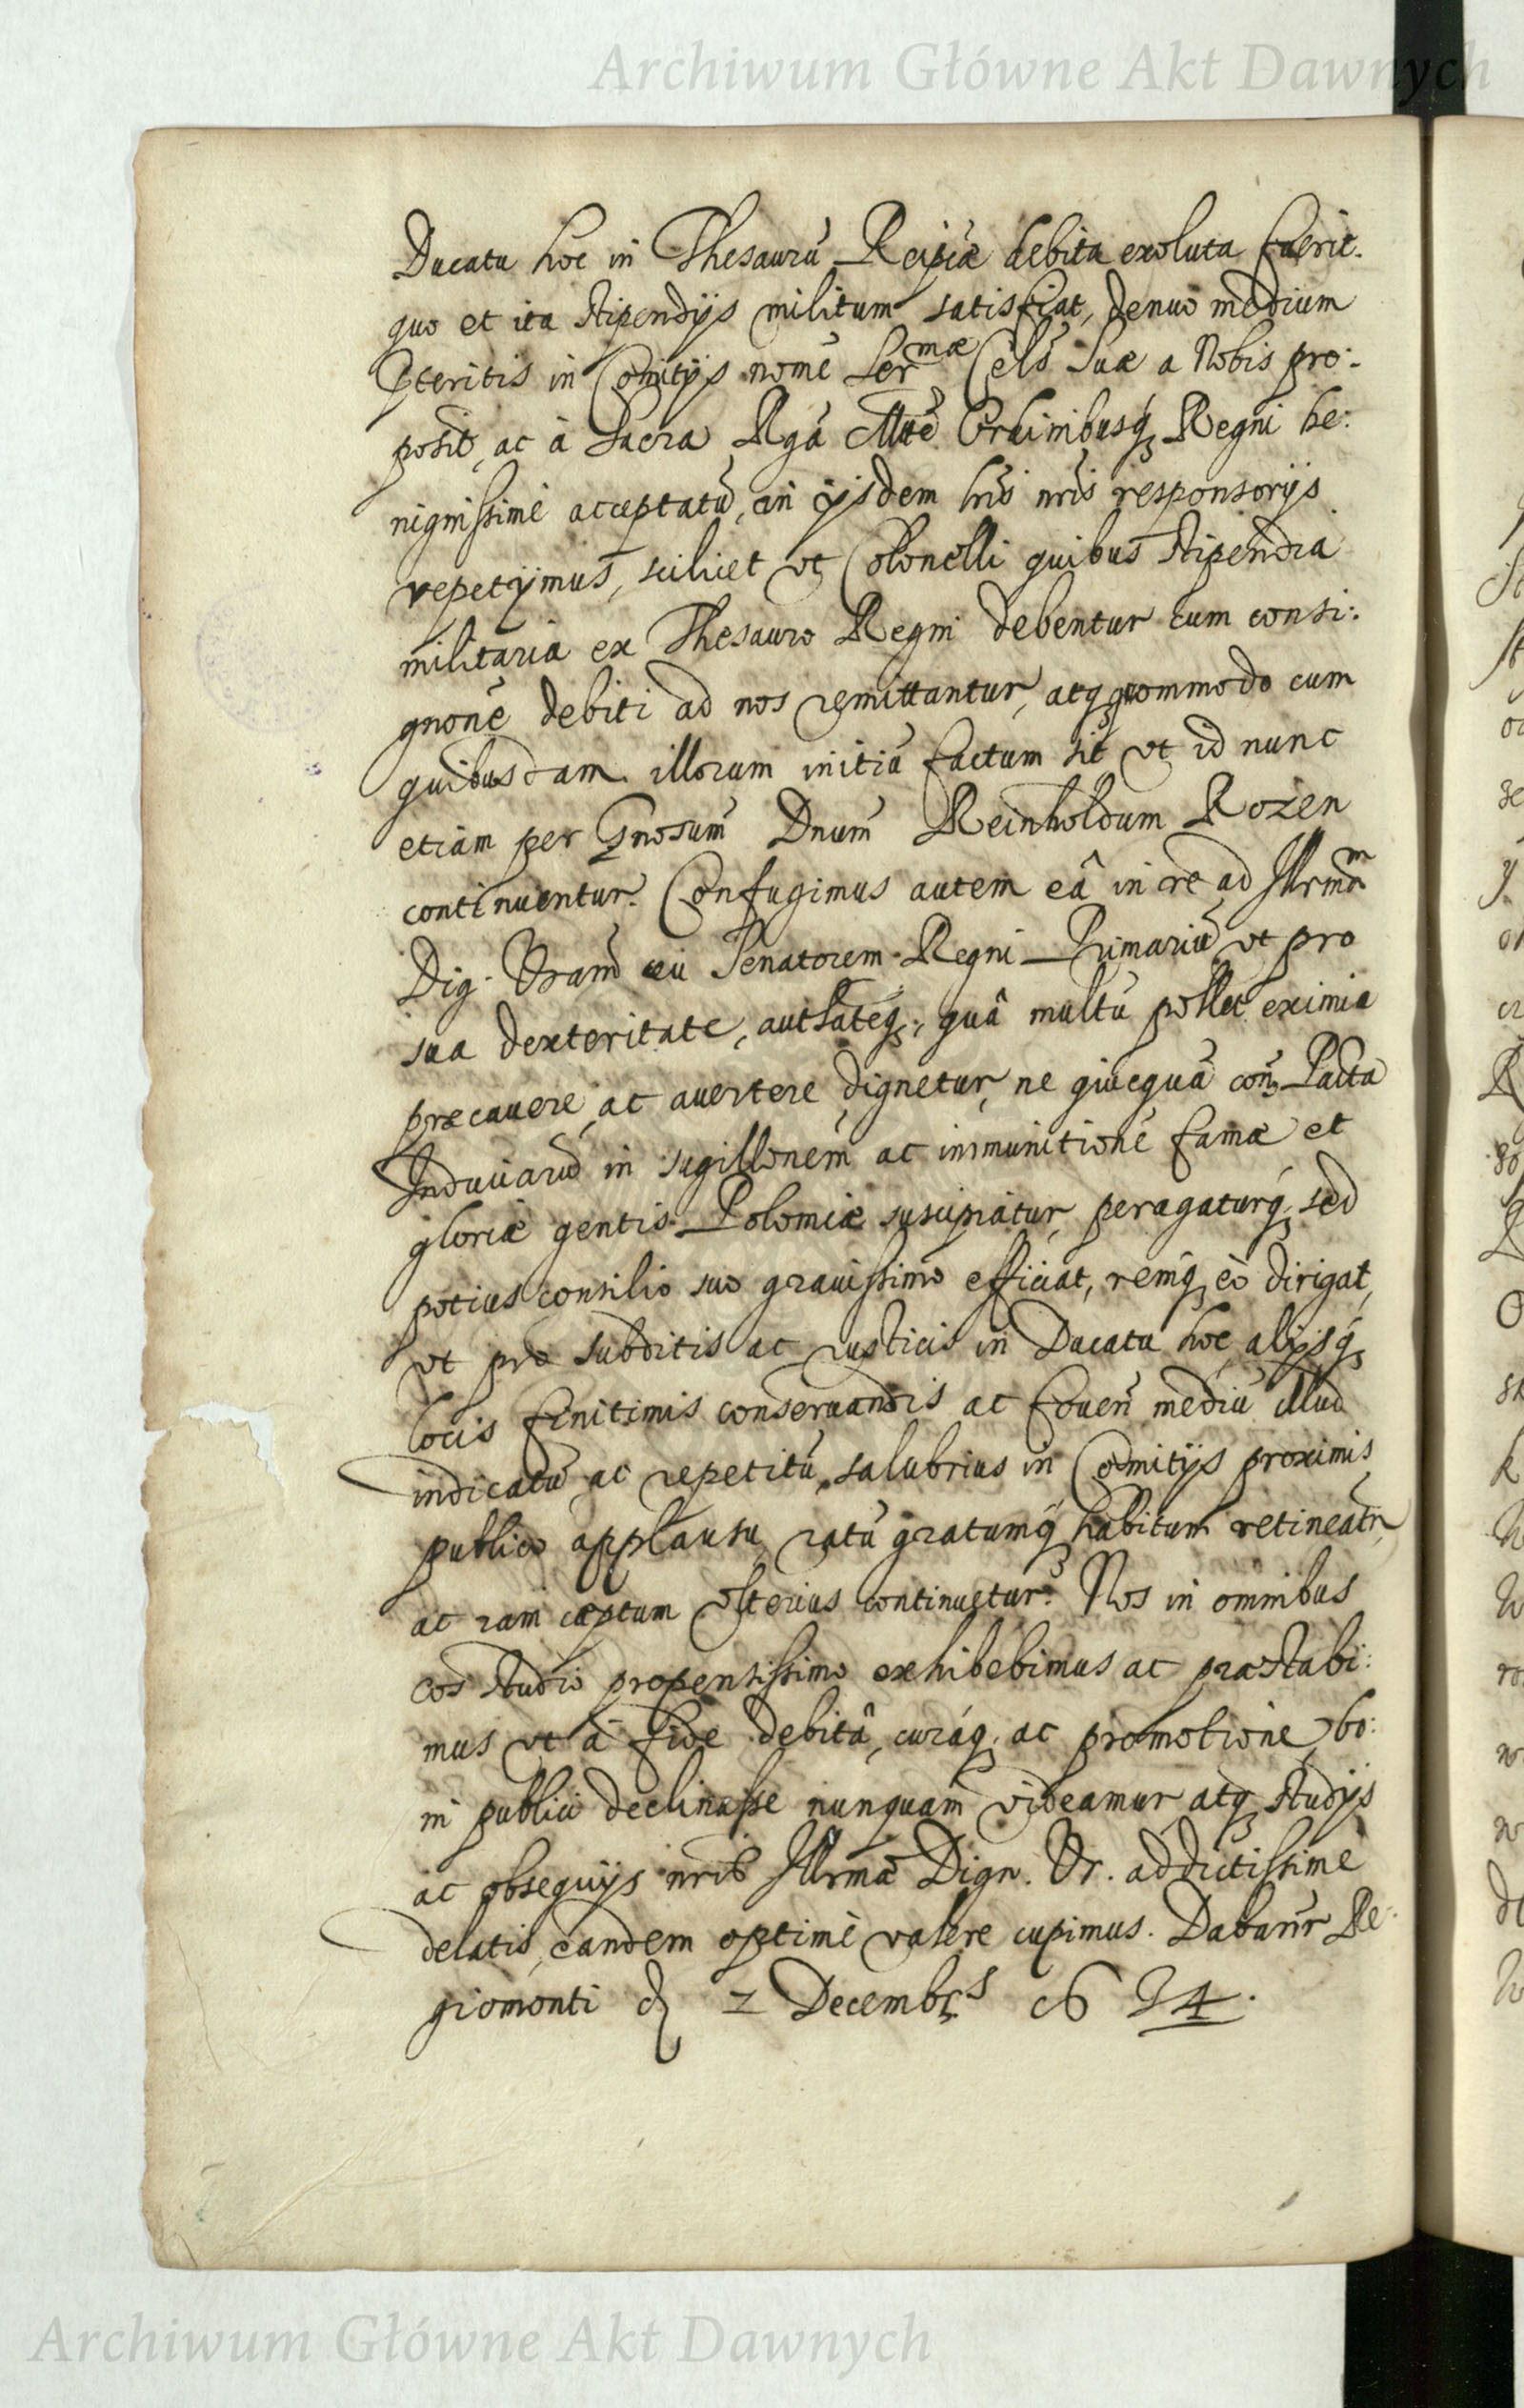 Archiwum Główne Akt Dawnych
Ducatu hoc in Thesaurū Reipcæ debita exoluta fuerit.
quo et ita stipendijs militum satisfiat, denuo medium
Pteritis in Comitijs nomē Sermæ Cels Suæ a Nobis pro:
posit, ac à Sacra Rgā Mtte Ordinibusq Regni be:
nignissimè acceptatū, in ijsdem lris nris responsorijs
repetijmus, scilicet vt Colonelli quibus stipendia
militaria ex Thesauro Regni debentur cum consi:
gnonē debiti ad nos remittantur, atq commodo cum
quibusdam illorum initiū factum sit vt id nunc
etiam per Gnosum Dnum Reinholdum Rozen
continuentur. Confugimus autem eâ in re ad Illrmam
Dig. Vram ceu Senatorem Regni Primariū vt pro
sua dexteritate, authateq;, quâ multū pollet eximia
præcauere, ac auertere dignetur, ne quicquā con Pacta
Induciarū in sugillonem ac imminitionē famæ et
gloriæ gentis Poloniæ suscipiatur, peragaturq, sed
potius consilio suo grauissimo efficiat, remq eò dirigat,
vt pro subditis ac rusticis in Ducatu hoc, alijsq
locis finitimis conseruandis ac fouen mediū illud
indicatū ac repetitū, salubrius in Comitijs proximis
publico applausu, ratū gratumq habitum retineatr,
ac iam cæptum vlterius continuetur. Nos in omnibus
eos studio propensissimo exhibebimus ac præstabi:
mus vt à fide debitâ, curáq; ac promotione bo:
ni publici declinasse nunquam videamur, atq studijs
ac obsequijs nris Illrmæ Dign. Vr. addictissimè
delatis, eandem optimè valere cupimus. Dabanr Re:
giomonti d 2 Decembrs 1634.
Archiwum Główne Akt Dawnych